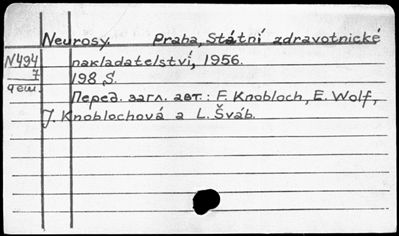 Neurosy. Praha, Státní zdravotnické
N494 nakladatelství, 1956.
7 198 S.
чеш. Перед. загл. авт.: F. Knobloch, E. Wolf,
J. Knoblochová a L. Šváb.